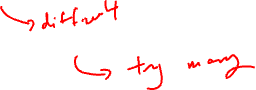 different
try many